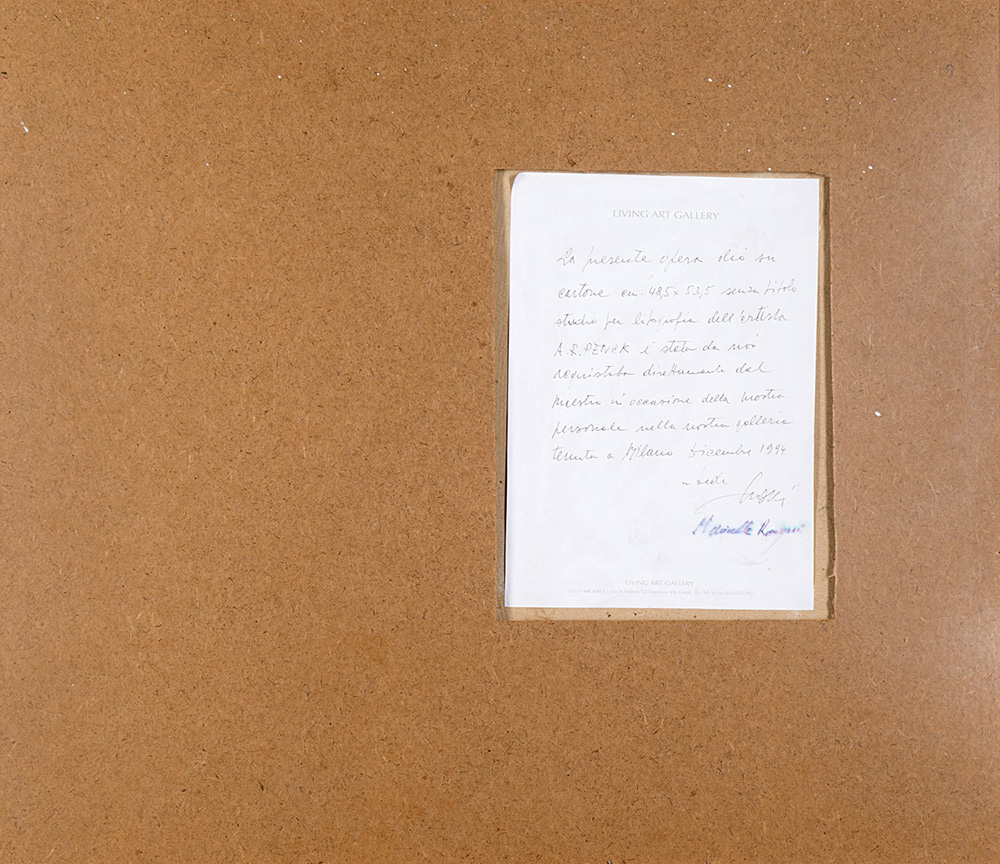 LIVING ART GALLERY
La presente opera olio su
cartone cm. 48,5 x 53,5 senza titolo
studio per litografia dell'artista
A.R. PENCK è stata da noi
acquistata direttamente dal
maestro in occasione della mostra
personale nella nostra galleria
tenuta a Milano Dicembre 1994
in fede
LIVING ART GALLERY
20121 MILANO